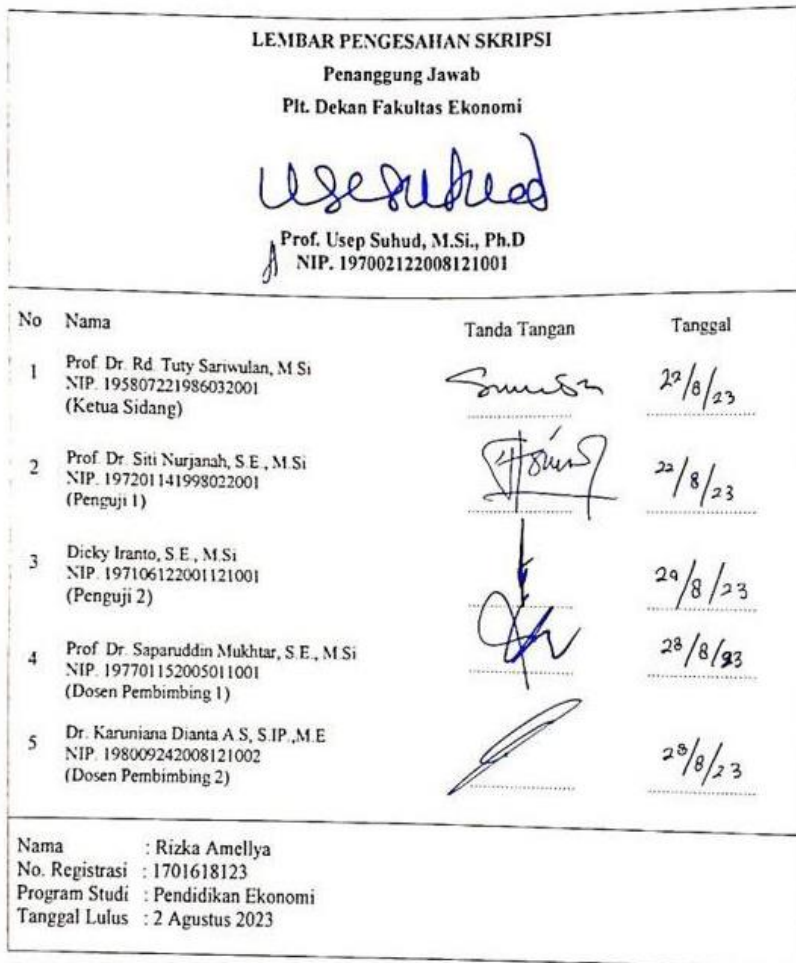 LEMBAR PENGESAHAN SKRIPSI
Penanggung Jawab
Plt. Dekan Fakultas Ekonomi
Prof. Usep Suhud, M.Si., Ph.D
NIP. 197002122008121001
No Nama Tanda Tangan Tanggal
1 Prof. Dr. Rd. Tuty Sariwulan, M.Si
NIP. 195807221986032001
(Ketua Sidang)
22/8/23
2 Prof. Dr. Siti Nurjanah, S.E., M.Si
NIP. 197201141998022001
(Penguji 1)
22/8/23
3 Dicky Iranto, S.E., M.Si
NIP. 197106122001121001
(Penguji 2)
29/8/23
4 Prof. Dr. Saparuddin Mukhtar, S.E., M.Si
NIP. 197701152005011001
(Dosen Pembimbing 1)
28/8/23
5 Dr. Karuniana Dianta A.S, S.IP.,M.E
NIP. 198009242008121002
(Dosen Pembimbing 2)
28/8/23
Nama : Rizka Amellya
No. Registrasi : 1701618123
Program Studi : Pendidikan Ekonomi
Tanggal Lulus : 2 Agustus 2023